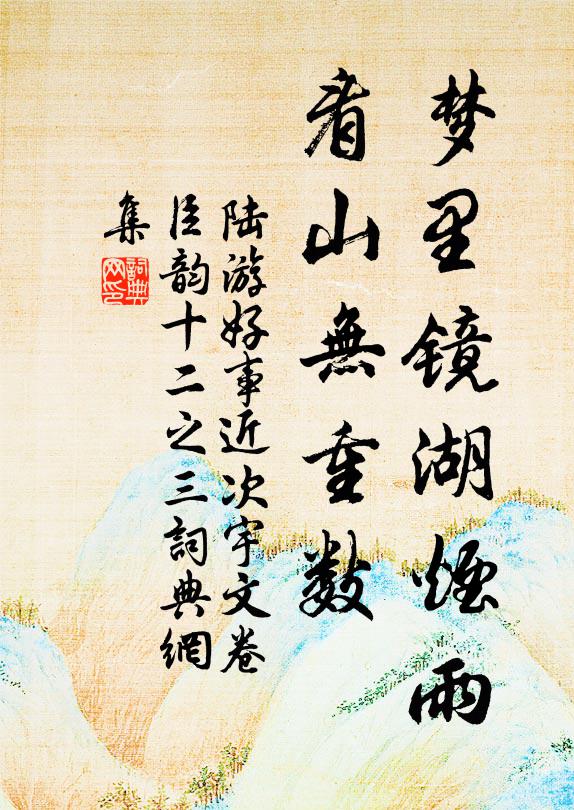 梦里镜湖煙雨
看山無重数
陆游好事近次宇文卷
臣韵十二之三詞典網
集
詞典
网印